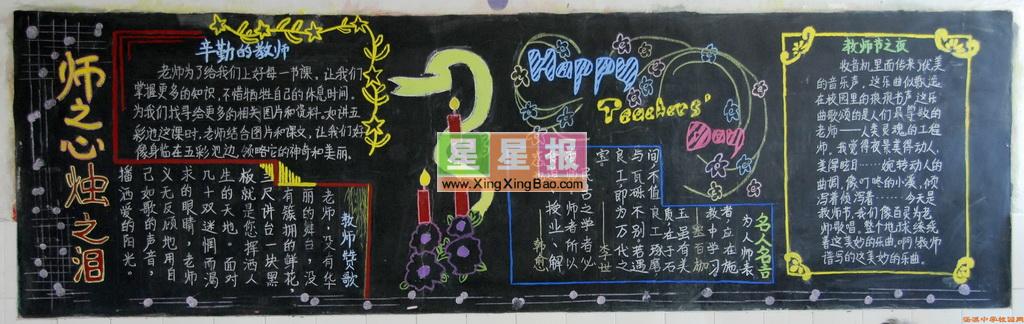 师之心烛之泪
辛勤的教师
老师为了给我们上好每一节课，让我们
掌握更多的知识，不惜牺牲自己的休息时间，
为我们找寻些更多的相关图片和资料。如讲五
彩池这课时，老师结合图片和课文，让我们好
像身临在五彩池边，领略它的神奇和美丽。
教师赞歌
老师，没有华
丽的舞台，没
有簇拥的鲜花，
三尺讲台一块黑
板就是您挥洒人
生的天地。面对
几十双迷惘而渴
求的眼睛，老师
义无反顾地用自
己如歌的声音，
播洒爱的阳光。
星星报
www.XingXingBao.com
Happy
Teachers'
Day
名人名言
为人师表
者应在施
教中学习
玉虽有美
质在于石
间不值良工琢磨
与瓦砾不别若遇
良工即为万代之
宝
李世
古之学者必
师者所以
授业、解
韩愈
教师节之夜
收音机里面传来优美
的音乐声，这乐曲似歌远
在校园里的琅琅书声，这乐
曲歌颂的是人们最尊敬的
老师——人类灵魂的工程
师，我觉得夜景美得动人，
美得眩目……婉转动人的
曲调，像叮咚的小溪，倾
泻着倾泻着……今天是
教师节，我们像百灵为老
师歌唱，整个地球缭绕
着这美妙的乐曲。啊！教师
谱写的这美妙的乐曲。